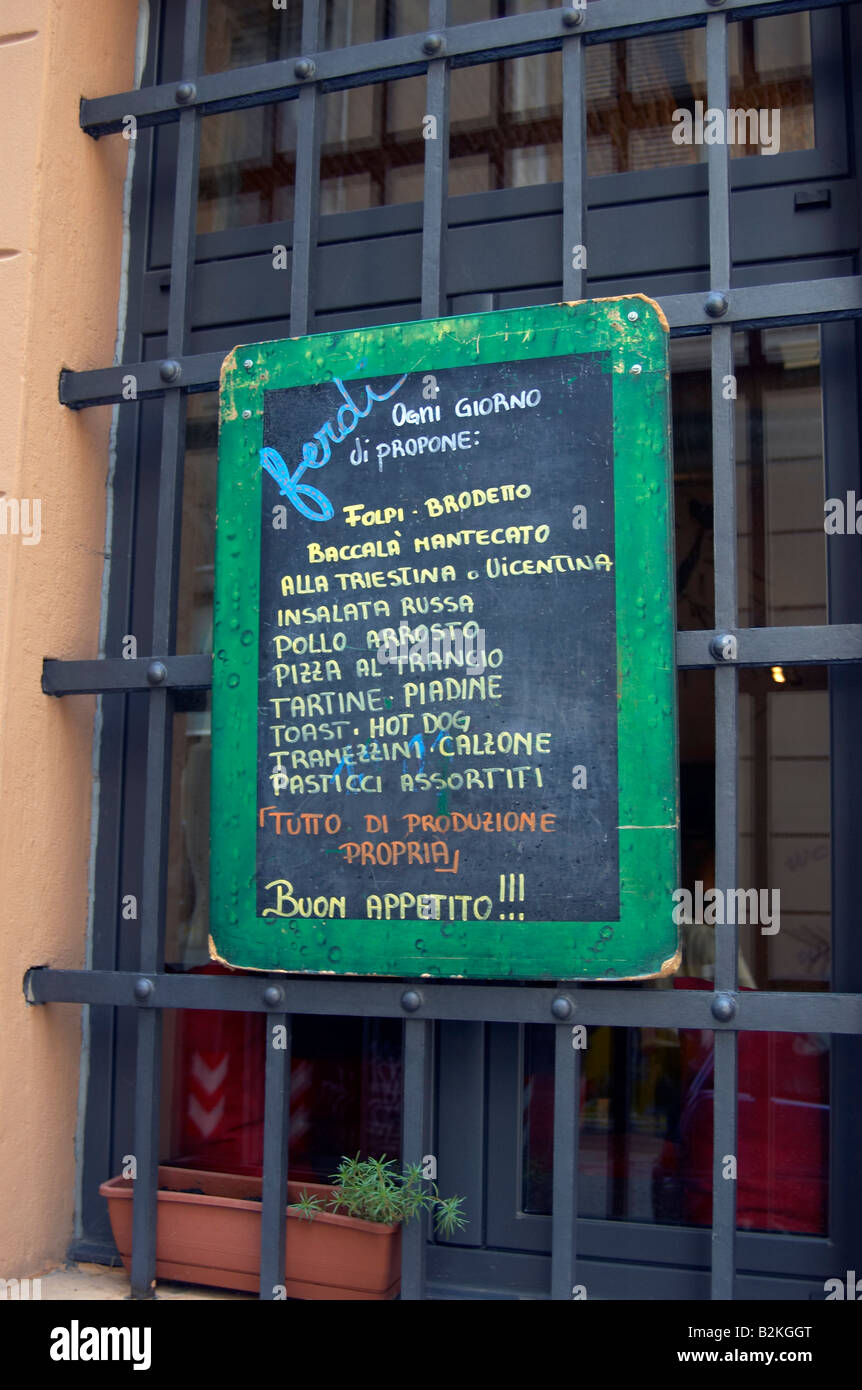 ferdi
Ogni giorno
di propone:
Folpi - Brodetto
Baccalà mantecato
alla triestina o vicentina
Insalata russa
Pollo arrosto
Pizza al trancio
Tartine - Piadine
Toast - Hot dog
Tramezzini - Calzone
Pasticci assortiti
"Tutto di produzione
propria"
Buon appetito!!!
alamy
Image ID: B2KGGT
www.alamy.com